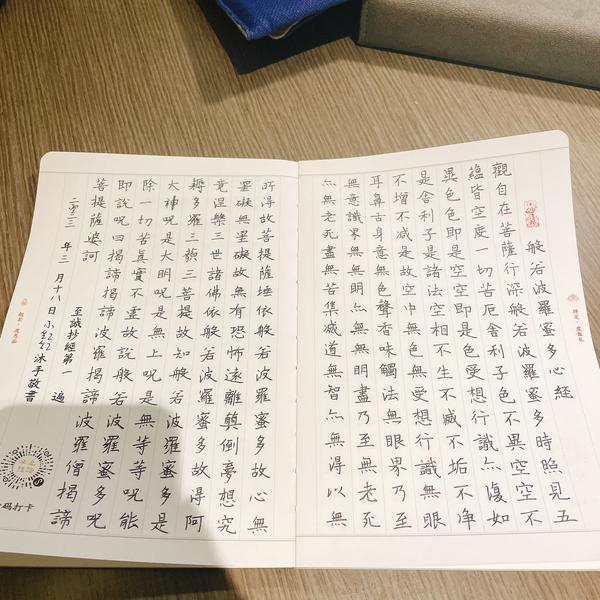 般若波羅蜜多心經
觀自在菩薩行深般若波羅蜜多時照見五
蘊皆空度一切苦厄舍利子色不異空空不
異色色即是空空即是色受想行識亦復如
是舍利子是諸法空相不生不滅不垢不净
不增不减是故空中無色無受想行識無眼
耳鼻舌身意無色聲香味觸法無眼界乃至
無意識界無無明亦無無明盡乃至無老死
亦無老死盡無苦集滅道無智亦無得以無
所得故菩提薩埵依般若波羅蜜多故心無
罣礙無罣礙故無有恐怖遠離顛倒夢想究
竟涅槃三世諸佛依般若波羅蜜多故得阿
耨多羅三藐三菩提故知般若波羅蜜多是
大神呪是大明呪是無上呪是無等等呪能
除一切苦真實不虛故說般若波羅蜜多呪
即說呪曰揭諦揭諦波羅揭諦波羅僧揭諦
菩提薩婆訶
至誠抄經第一遍
二零二三年三月十八日 冰手敬書
码打卡